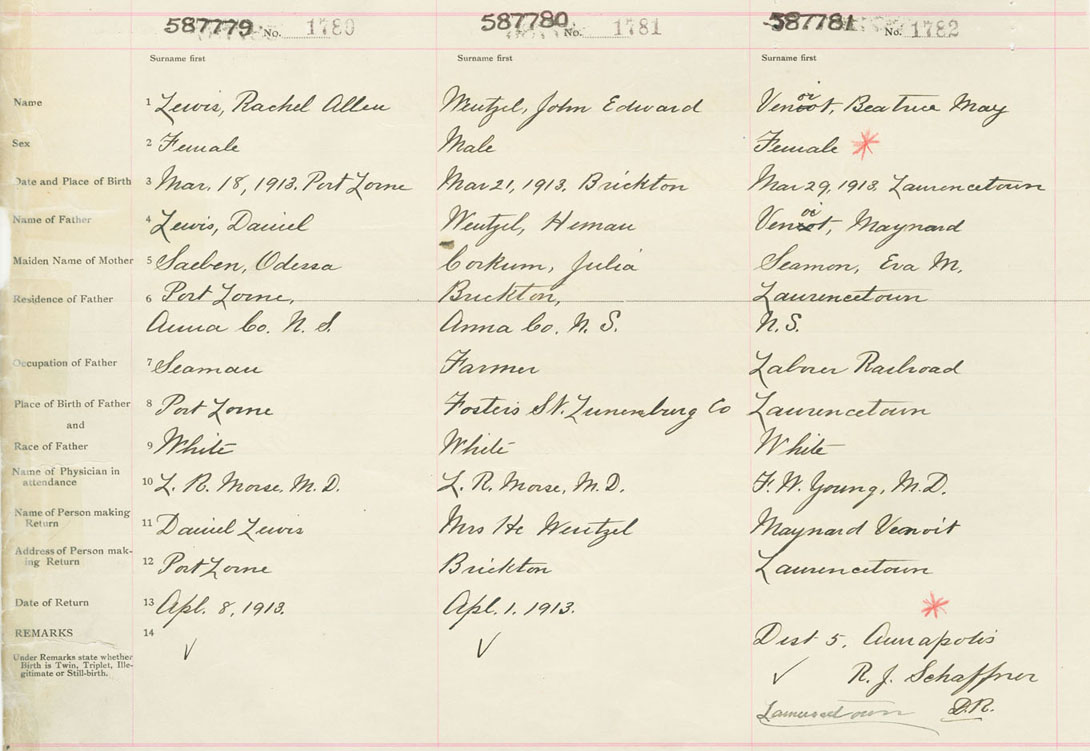 587779 No. 1780 587780 No. 1781 587781 No. 1782
Surname first Surname first Surname first
Name 1 Lewis, Rachel Allen Wentzel, John Edward Venoit, Beatrice May
Sex 2 Female Male Female *
Date and Place of Birth 3 Mar. 18, 1913. Port Lorne Mar 21, 1913. Brickton Mar 29, 1913. Laurencetown
Name of Father 4 Lewis, Daniel Wentzel, Heman Venoit, Maynard
Maiden Name of Mother 5 Saeben, Odessa Corkum, Julia Seamon, Eva M.
Residence of Father 6 Port Lorne, Brickton, Laurencetown
Anna Co. N. S. Anna Co. N. S. N.S.
Occupation of Father 7 Seaman Farmer Laborer Railroad
Place of Birth of Father 8 Port Lorne Fosters St. Lunenburg Co Laurencetown
and
Race of Father 9 White White White
Name of Physician in
attendance 10 L. R. Morse, M.D. L. R. Morse, M.D. F. W. Young, M.D.
Name of Person making
Return 11 Daniel Lewis Mrs He Wentzel Maynard Venoit
Address of Person mak-
ing Return 12 Port Lorne Brickton Laurencetown
Date of Return 13 Apl. 8, 1913. Apl. 1, 1913. *
REMARKS 14 Dist 5, Annapolis
Under Remarks state whether
Birth is Twin, Triplet, Ille-
gitimate or Still-birth. ✓ ✓ ✓ R. J. Schaffner
Lawrencetown D.R.